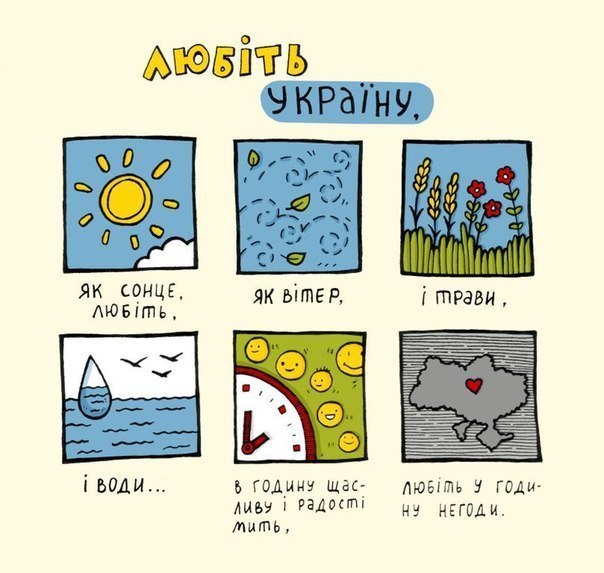 Любіть
Україну,
як сонце,
любіть,
як вітер,
і трави,
і води...
в годину щас-
ливу і радості
мить,
любіть у годи-
ну негоди.